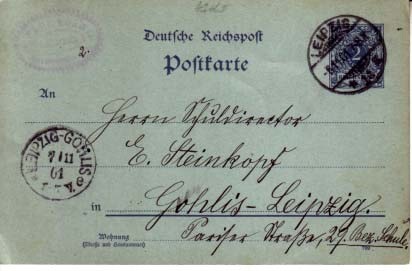 2.
Deutsche Reichspost
Postkarte
LEIPZIG
An
Herrn Schuldirector
E. Steinkopf
LEIPZIG-GOHLIS
7/11
01
in Gohlis-Leipzig.
Wohnung
(Straße und Hausnummer)
Pariser Straße, 29. Bez. Schule.